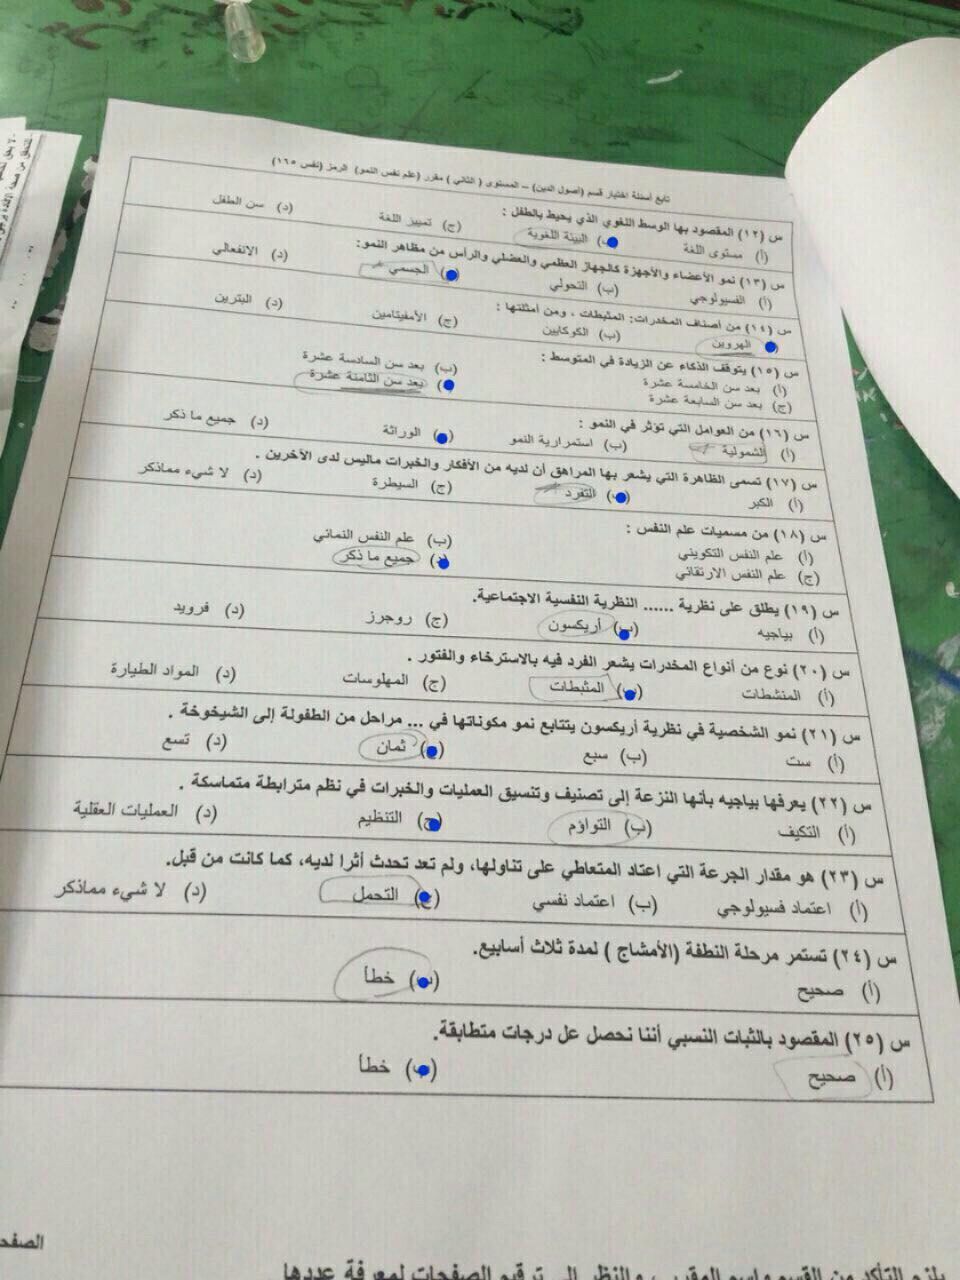 تابع أسئلة اختبار قسم (أصول الدين) – المستوى (الثاني) مقرر (علم نفس النمو) الرمز (نفس ١٦٥)
س (١٢) المقصود بها الوسط اللغوي الذي يحيط بالطفل :
(أ) مستوى اللغة (ب) البيئة اللغوية (ج) تمييز اللغة (د) سن الطفل
س (١٣) نمو الأعضاء والأجهزة كالجهاز العظمي والعضلي والرأس من مظاهر النمو:
(أ) الفسيولوجي (ب) التحولي (ج) الجسمي (د) الانفعالي
س (١٤) من أصناف المخدرات: المثبطات ، ومن أمثلتها :
(أ) الهروين (ب) الكوكايين (ج) الأمفيتامين (د) البترين
س (١٥) يتوقف الذكاء عن الزيادة في المتوسط :
(أ) بعد سن الخامسة عشرة (ب) بعد سن السادسة عشرة
(ج) بعد سن السابعة عشرة (د) بعد سن الثامنة عشرة
س (١٦) من العوامل التي تؤثر في النمو :
(أ) الشمولية (ب) استمرارية النمو (ج) الوراثة (د) جميع ما ذكر
س (١٧) تسمى الظاهرة التي يشعر بها المراهق أن لديه من الأفكار والخبرات ماليس لدى الآخرين .
(أ) الكبر (ب) التفرد (ج) السيطرة (د) لا شيء مماذكر
س (١٨) من مسميات علم النفس :
(أ) علم النفس التكويني (ب) علم النفس النمائي
(ج) علم النفس الارتقائي (د) جميع ما ذكر
س (١٩) يطلق على نظرية ...... النظرية النفسية الاجتماعية.
(أ) بياجيه (ب) أريكسون (ج) روجرز (د) فرويد
س (٢٠) نوع من أنواع المخدرات يشعر الفرد فيه بالاسترخاء والفتور .
(أ) المنشطات (ب) المثبطات (ج) المهلوسات (د) المواد الطيارة
س (٢١) نمو الشخصية في نظرية أريكسون يتتابع نمو مكوناتها في ... مراحل من الطفولة إلى الشيخوخة .
(أ) ست (ب) سبع (ج) ثمان (د) تسع
س (٢٢) يعرفها بياجيه بأنها النزعة إلى تصنيف وتنسيق العمليات والخبرات في نظم مترابطة متماسكة .
(أ) التكيف (ب) التواؤم (ج) التنظيم (د) العمليات العقلية
س (٢٣) هو مقدار الجرعة التي اعتاد المتعاطي على تناولها، ولم تعد تحدث أثرا لديه، كما كانت من قبل.
(أ) اعتماد فسيولوجي (ب) اعتماد نفسي (ج) التحمل (د) لا شيء مماذكر
س (٢٤) تستمر مرحلة النطفة (الأمشاج ) لمدة ثلاث أسابيع.
(أ) صحيح (ب) خطأ
س (٢٥) المقصود بالثبات النسبي أننا نحصل عل درجات متطابقة.
(أ) صحيح (ب) خطأ
يلزم التأكد من القسم واسم المقرر ، والنظر إلى ترقيم الصفحات لمعرفة عددها